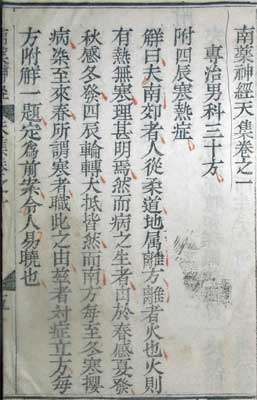 南藥神經天集卷之一
專治男科三十方
附四辰寒熱症
解曰夫南郊者人從柔道地属離方離者火也火則
有熱無寒理甚明焉然而病之生者由於春感夏發
秋感冬發四辰輪轉大抵皆然而南方每至冬寒櫻
病染至來春所謂寒者職此之由茲者对症立方每
方附解一題定為前案令人易曉也